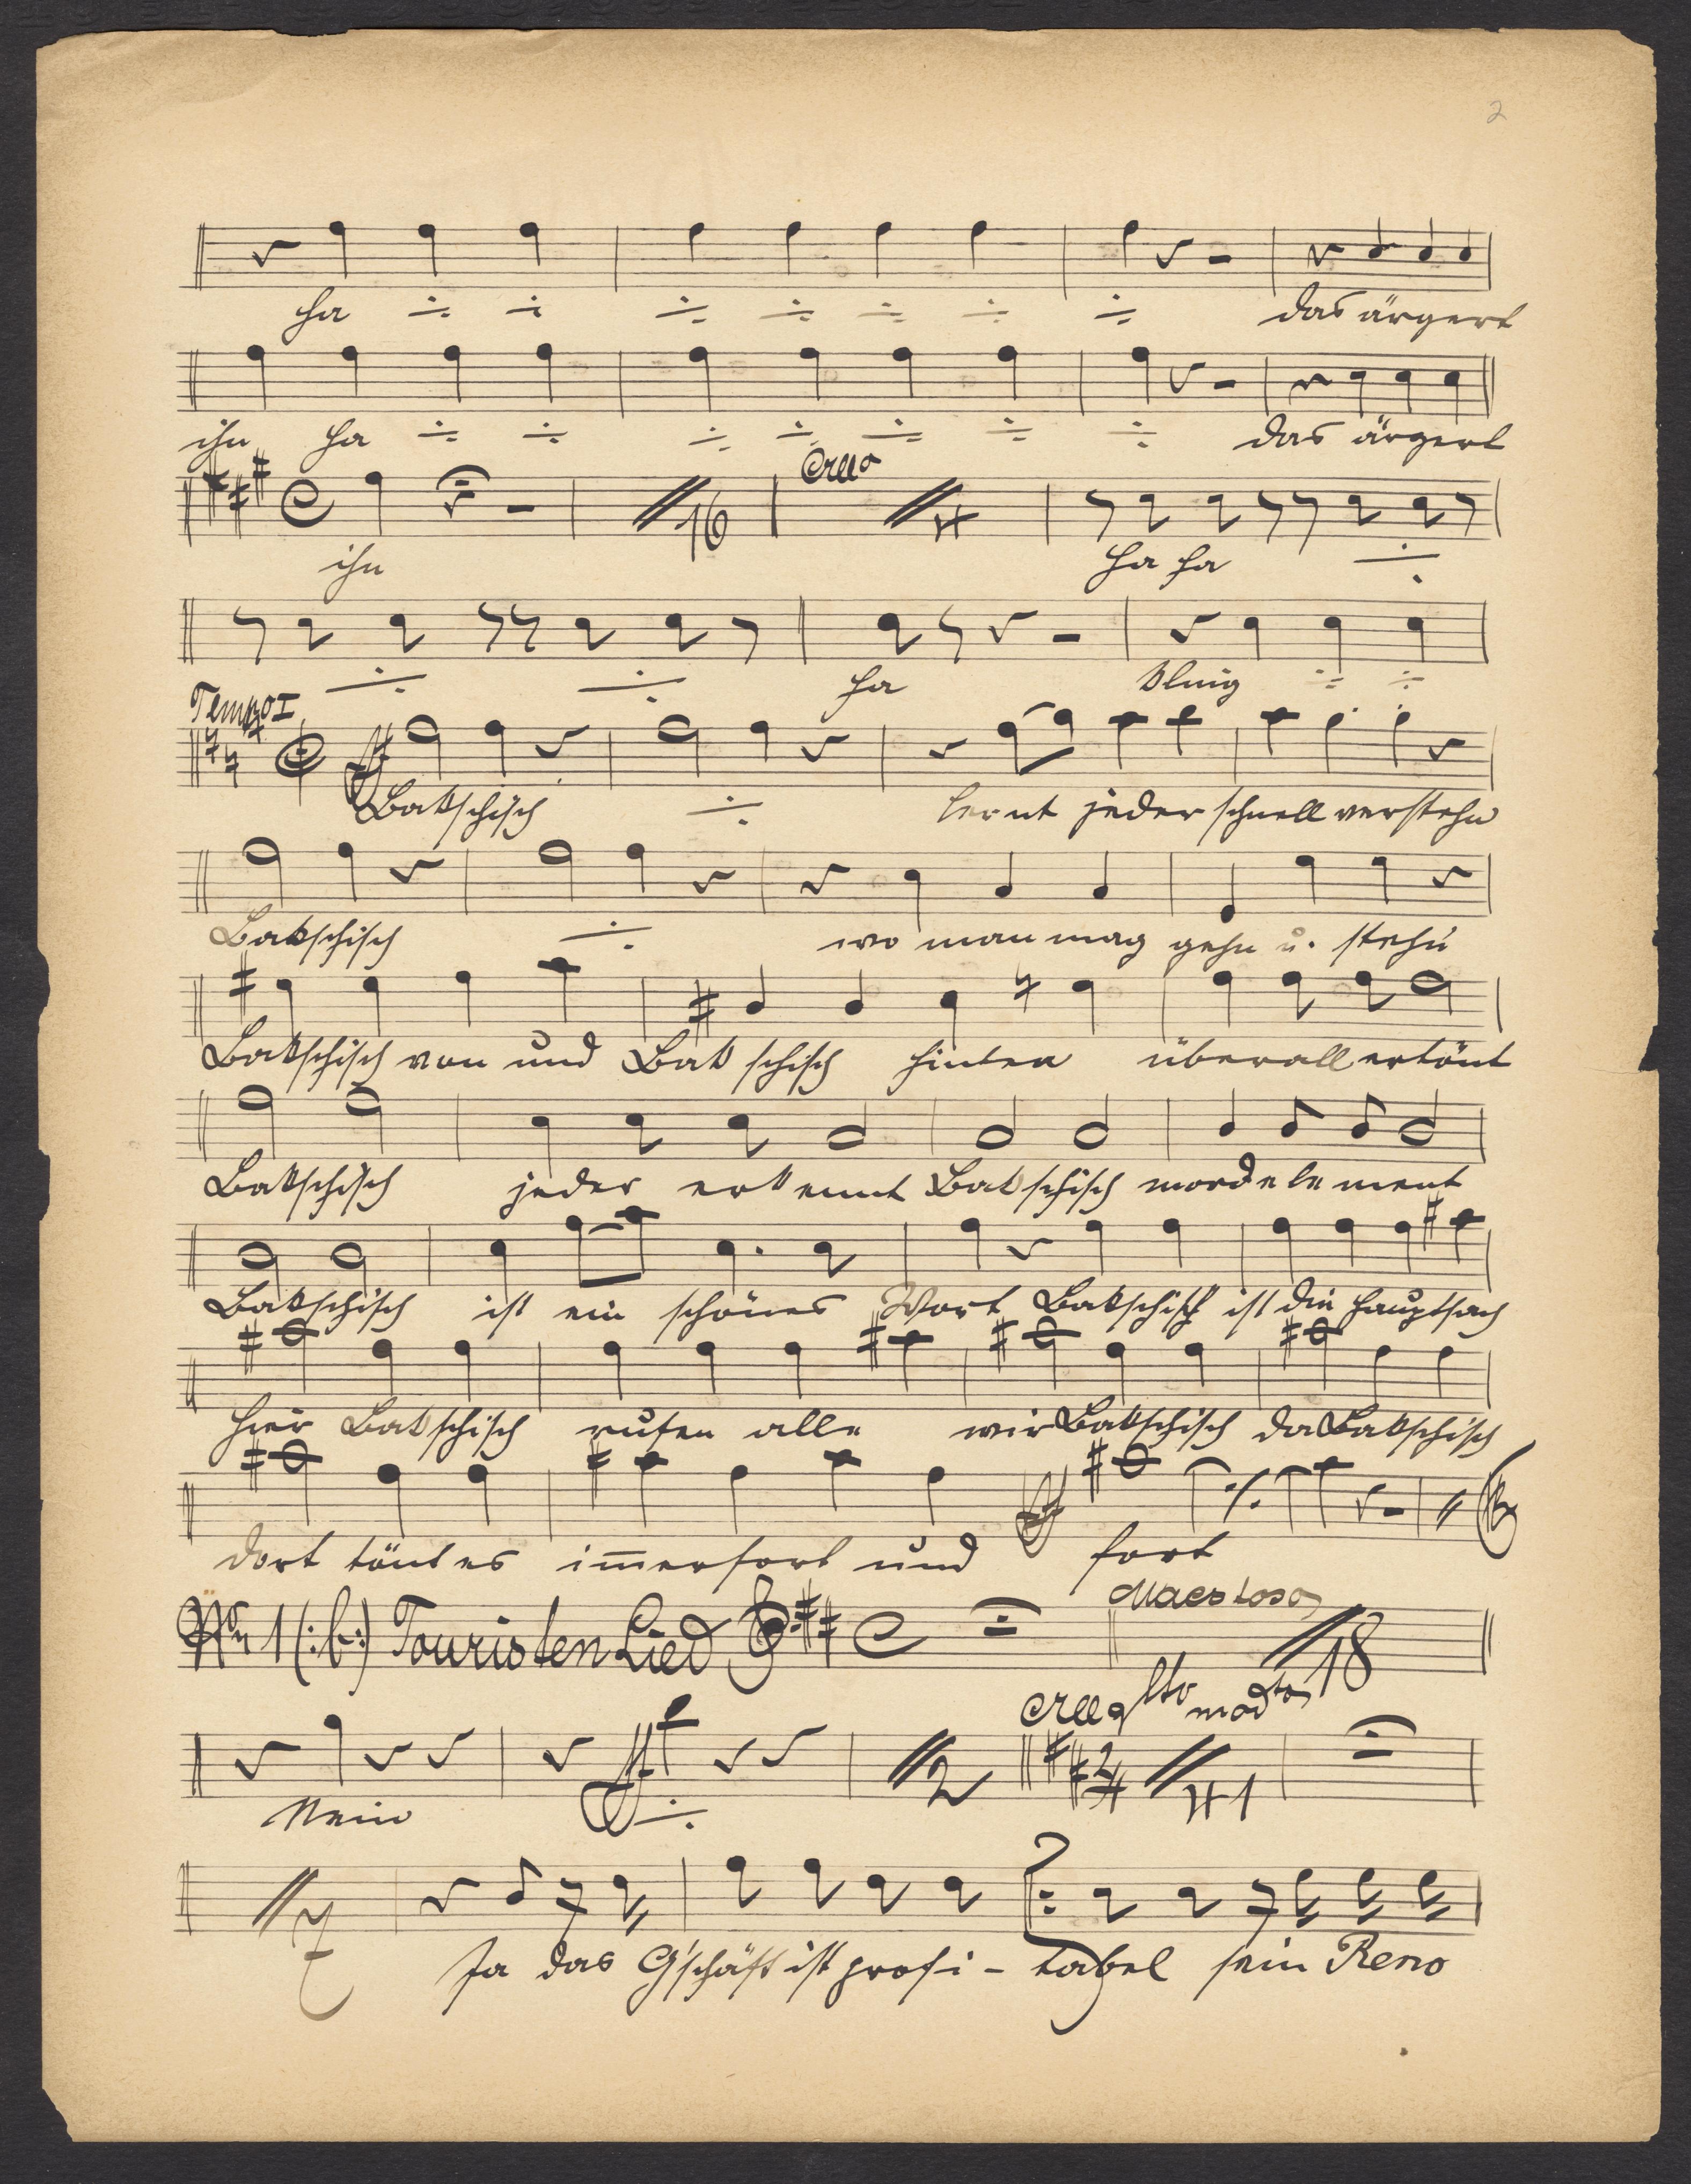 2
ha ÷ ÷ ÷ ÷ ÷ ÷ ÷ das ärgert
ihn ha ÷ ÷ ÷ ÷ ÷ ÷ ÷ das ärgert
16 Allo 4
ihn ha ha ÷
÷ ÷ ha Kling ÷ ÷
Tempo I
Bakschisch ÷ lernt jeder schnell verstehn
Bakschisch ÷ wo man mag gehn u. stehn
Bakschisch von und Bakschisch hinten überall ertönt
Bakschisch jeder erkennt Bakschisch mordelement
Bakschisch ist ein schönes Wort Bakschisch ist die Hauptsach
hier Bakschisch rufen alle wir Bakschisch da Bakschisch
dort tönt es immerfort und fort
No 1 (:b:) Touristen Lied Maestoso 18
2 Allegtto modto 2 4 41
Nein ÷
7
Ja das G'schäft ist profi - tabel sein Reno